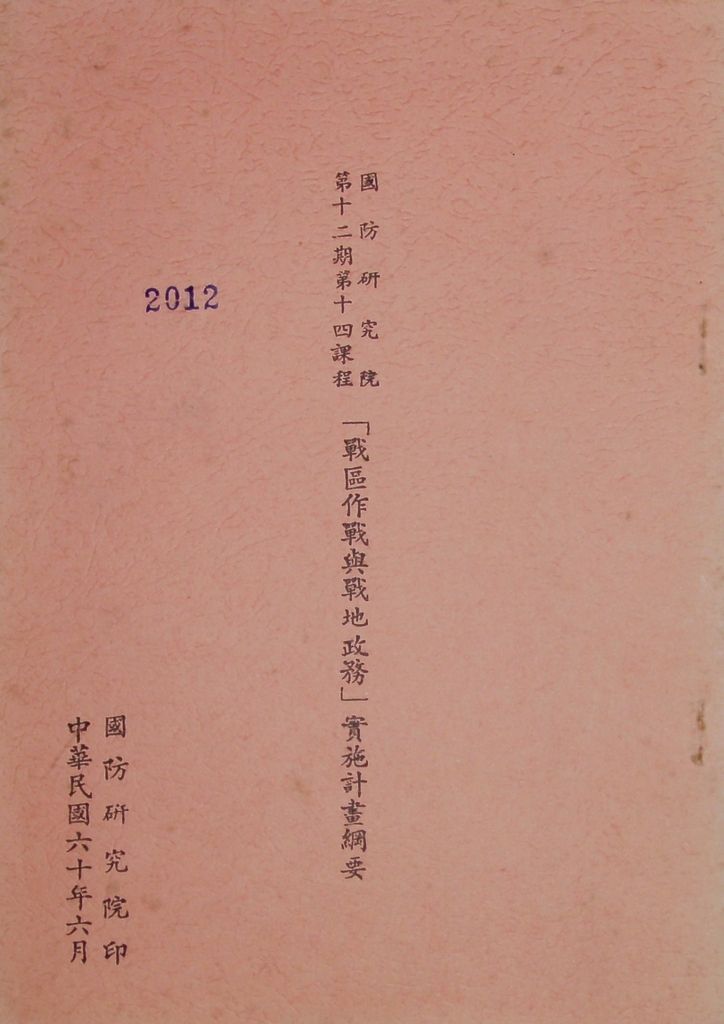 國防研究院
第十二期第十四課程
「戰區作戰與戰地政務」實施計畫綱要
2012
國防研究院印
中華民國六十年六月